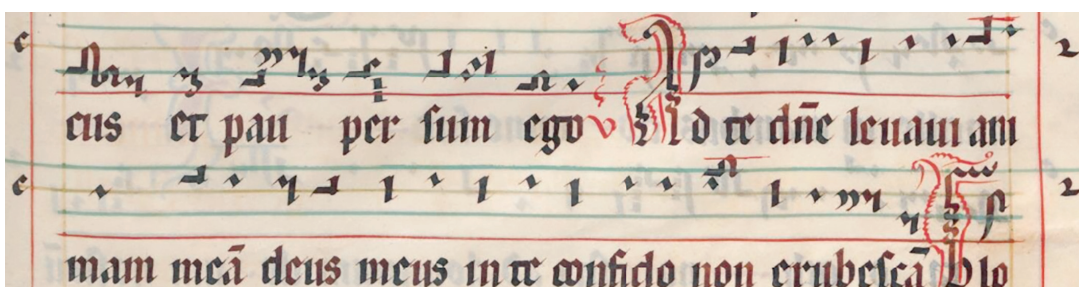 cus et pau per sum ego v Ad te dn̄e leuaui am
mam meā deus meus in te confido non erubescā